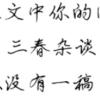 文中你的
三春杂谈
没有一稿